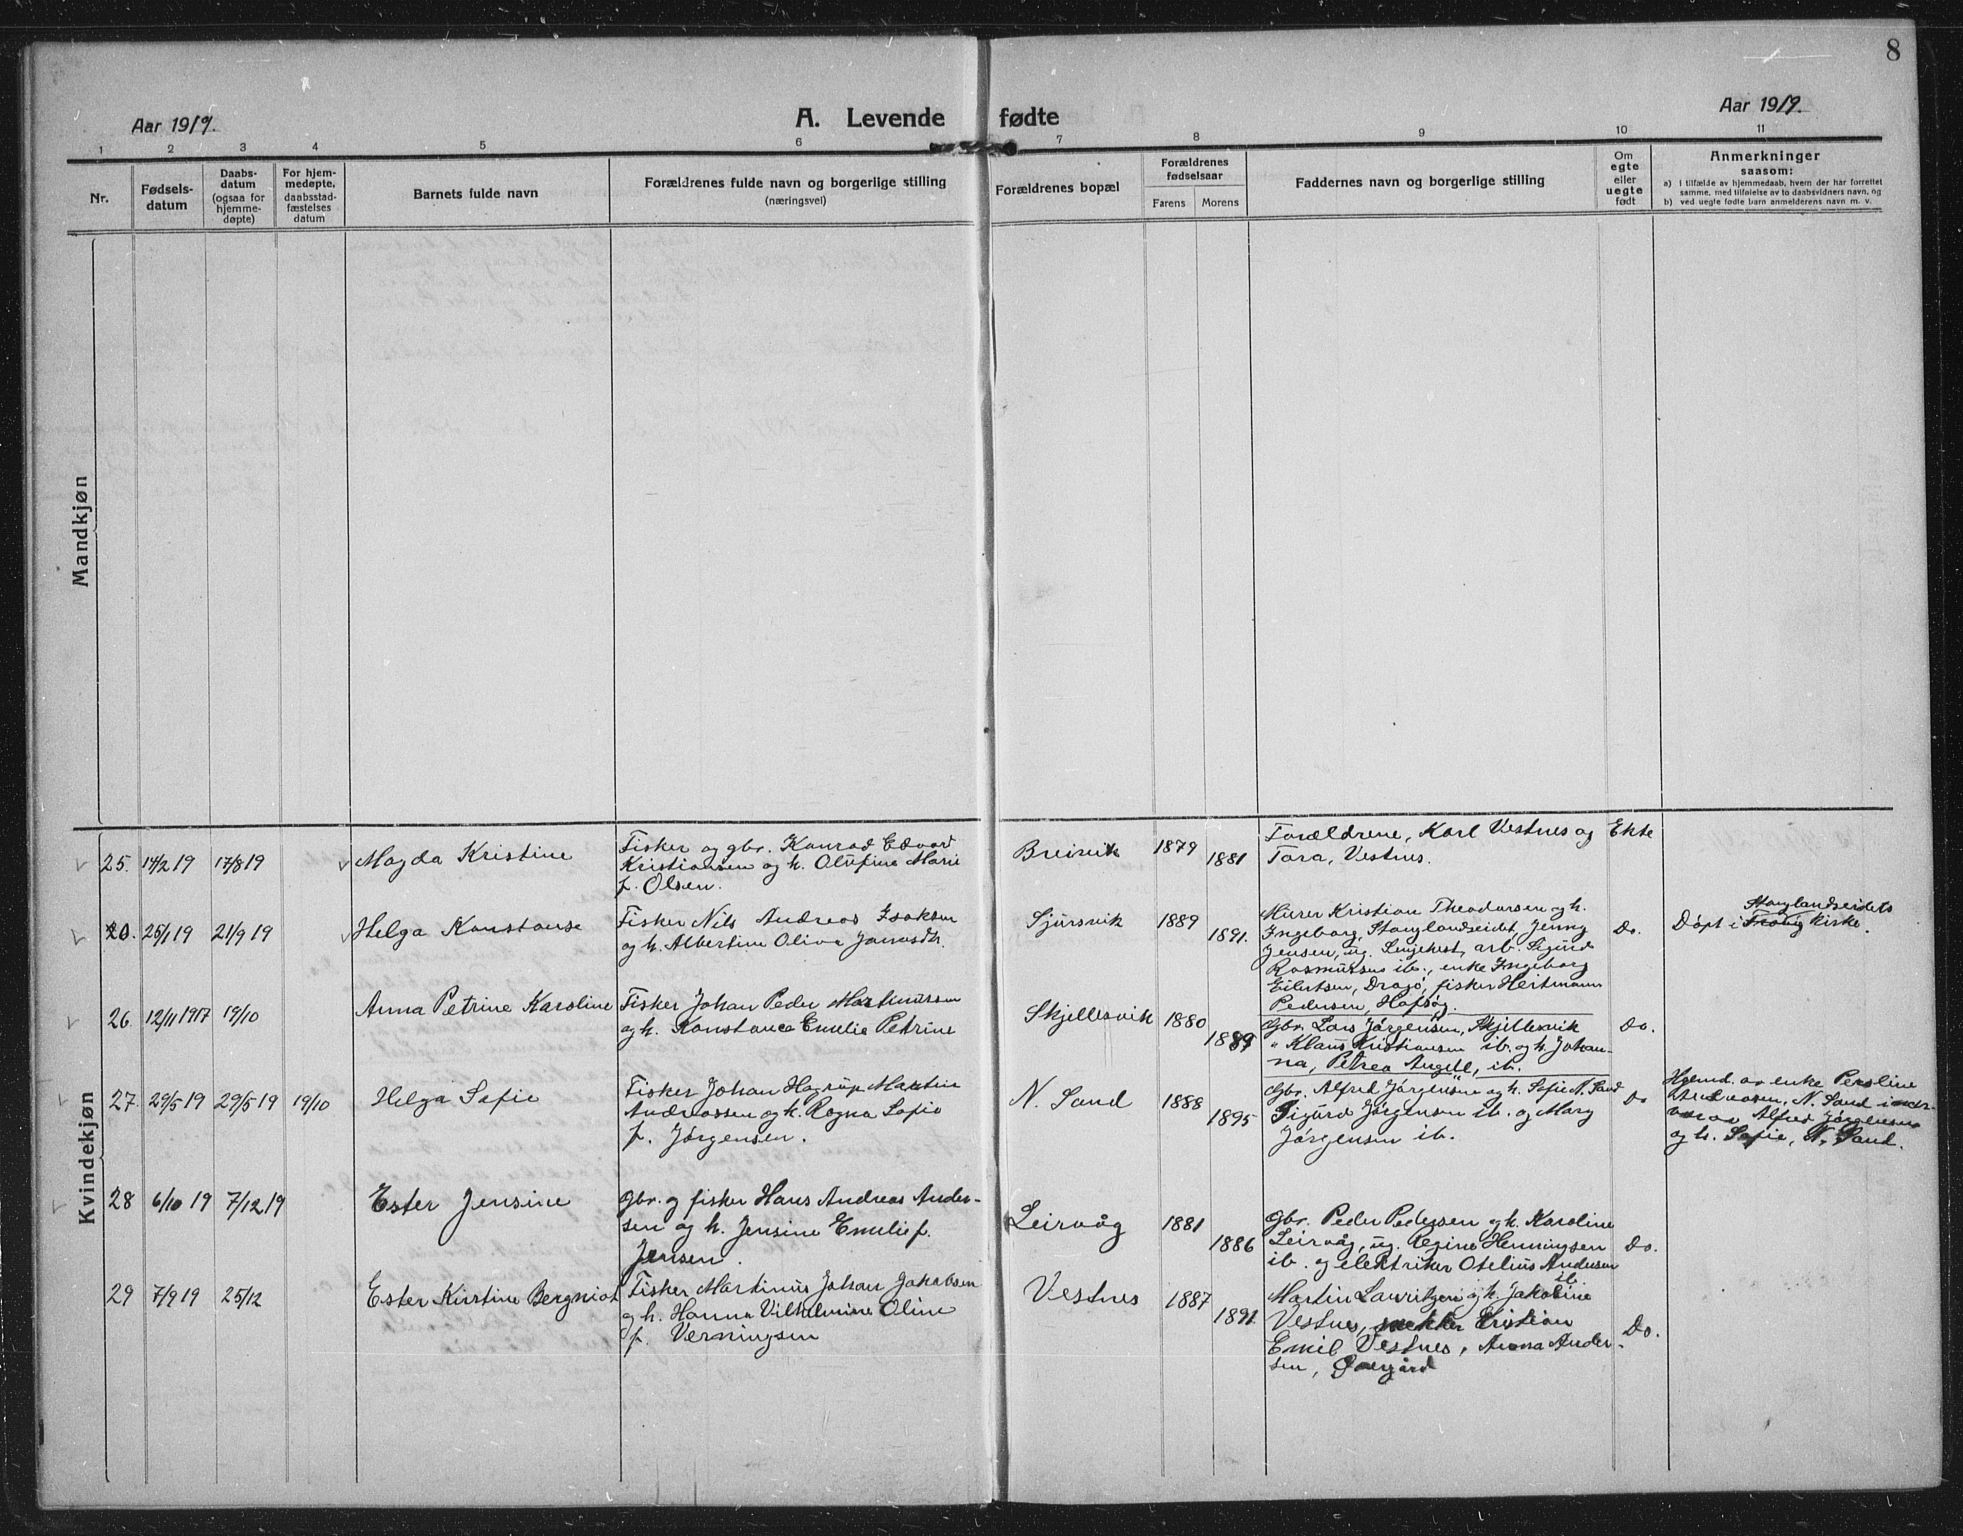 8
Aar 1919.
A. Levende fødte
Aar 1919.
1 2 3 4 5 6 7 8 9 10 11
Nr.
Fødsels-
datum
Daabs-
datum
(ogsaa for
hjemme-
døpte)
For hjem-
medøpte,
daabsstad-
fæstelses
datum
Barnets fulde navn
Forældrenes fulde navn og borgerlige stilling
(næringsvei)
Forældrenes bopæl
Forældrenes
fødselsaar
Farens Morens
Faddernes navn og borgerlige stilling
Om
egte
eller
uegte
født
Anmerkninger
saasom:
a) i tilfælde av hjemmedaab, hvem der har forrettet
samme, med tilføielse av to daabsvidners navn, og
b) ved uegte fødte barn anmelderens navn m. v.
Mandkjøn
Kvindekjøn
25. 14/2 19 17/8 19
Magda Kristine
Fisker og gbr. Konrad Edvard
Kristiansen og h. Olufine Marie
f. Olsen.
Breivik
1879
1881
Forældrene, Karl Vestnes og
Tora, Vestnes.
Ekte
20. 25/1 19 21/9 19
Helga Konstanse
Fisker Nils Andreas Isaksen
og h. Albertine Oliva Jonasdtr.
Sjursvik
1889
1891.
Murer Kristian Theodorsen og h.
Ingeborg, Stanglandseidet, Jenny
Jensen, ug. Lenjehest, arb. Sigurd
Rasmussen ib., enke Ingeborg
Eilertsen, Drajö, fisker Heitmann
Pedersen, Hofsöy.
Do.
Stanglandseidets
Døpt i Tranöy Kirke.
26. 12/11 1917 19/10
Anna Petrine Karoline
Fisker Johan Peder Martinussen
og h. Konstance Emelie Petrine
Skjellesvik
1880
1889
Gbr. Lars Jörgensen, Skjellesvik
" Klaus Kristiansen ib. og h. Johan-
na, Petrea Angell, ib.
Do.
27. 29/5 19 29/5 19 19/10
Helga Sofie
Fisker Johan Hagrup Martin
Andreassen og h. Ragna Sofie
f. Jørgensen.
N. Sand
1888
1895
Gbr. Alfred Jörgensen og h. Sofie N. Sand
Sigurd Jörgensen ib. og Mary
Jörgensen ib.
Do
Hjemd. av enke Peroline
Andreasen, N. Sand
Alfred Jörgensen
og h. Sofie, N. Sand.
28 6/10 19 7/12 19
Ester Jensine
Gbr. og fisker Hans Andreas Ander-
sen og h. Jensine Emelie f.
Jensen.
Leirvåg
1881
1886
Gbr. Peder Pedersen og h. Karoline
Leirvåg, ug. Regine Henningsen
ib. og elektriker Otelius Andersen
ib.
Do.
29 7/9 19 25/12
Ester Kirstine Bergniot
Fisker Martinus Johan Jakobsen
og h. Hanna Vilhelmine Oline
f. Verningsen
Vestnes
1887
1891
Martin Lauritzen og h. Jakobine
Vestnes, snekker Kristian
Emil Vestnes, Anna Ander-
sen, Övergård
Do.